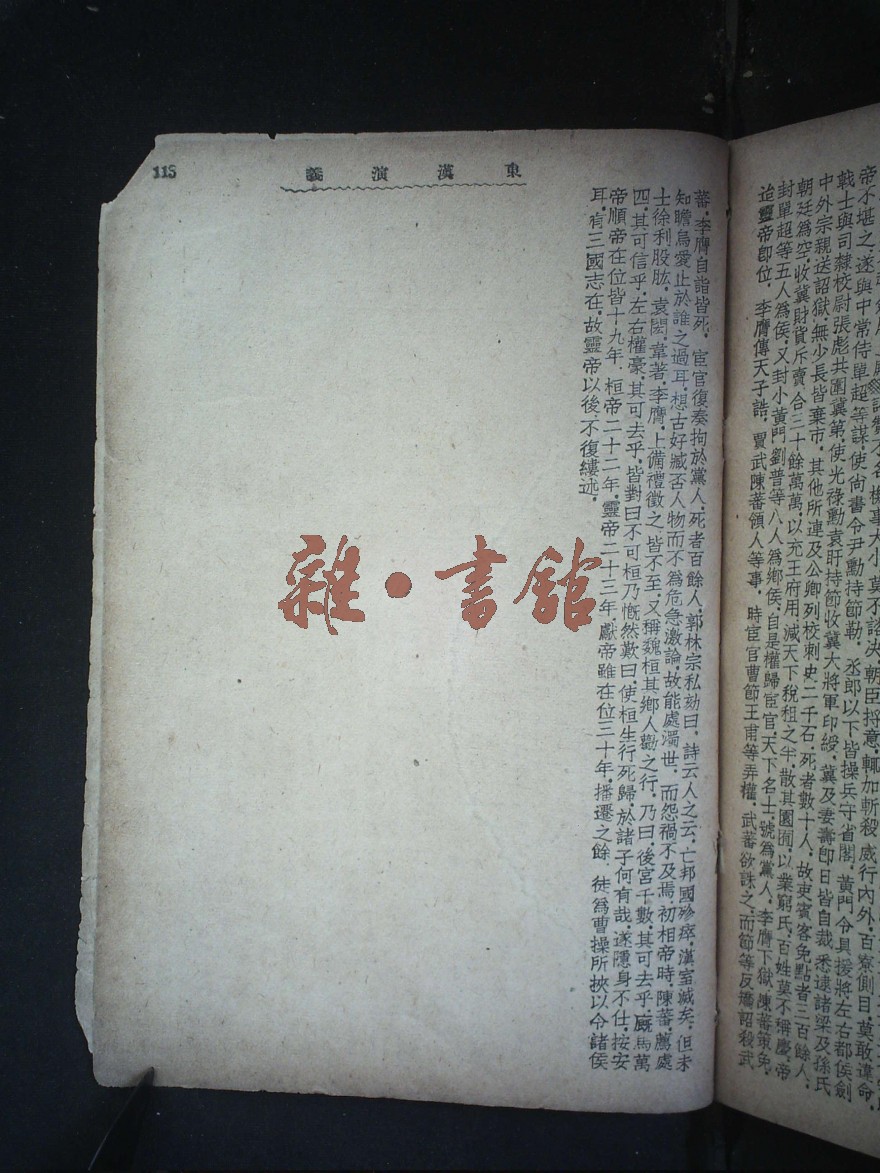 帝不堪之遂與中常侍單超等謀使尙書令尹勳持節勒丞郎以下皆操兵守省閣黃門令具援將左右都侯劍
戟士與司隸校尉張彪共圍冀第使光祿勳袁盱持節收冀大將軍印綬冀及妻壽卽日皆自裁悉逮諸梁及孫氏
中外宗親送詔獄無少長皆棄市其他所連及公卿列校刺史二千石死者數十人故吏賓客免點者三百餘人
朝廷爲空收冀財貨斥賣合三十餘萬萬以充王府用減天下稅租之半散其園囿以業窮氏百姓莫不稱慶帝
封單超等五人爲侯又封小黃門劉普等八人爲鄉侯自是權歸宦官天下名士號爲黨人李膺下獄陳蕃策免
迨靈帝卽位李膺傳天子誥賈武陳蕃領人等事時宦官曹節王甫等弄權武蕃欲誅之而節等反矯詔殺武
東漢演義
115
蕃李膺自詣皆死宦官復奏拘於黨人死者百餘人郭林宗私劾曰詩云人之云亡邦國殄瘁漢室滅矣但未
知瞻烏愛止於誰之過耳想古好臧否人物而不爲危急激論故能處濁世而怨禍不及焉初相帝時陳蕃薦處
士徐利股肱袁閎韋著李膺上備禮徵之皆不至又稱魏桓其鄉人勸之行乃曰後宮千數其可去乎厩馬萬
四其可信乎左右權豪其可去乎皆對曰不可桓乃慨然歎曰使桓生行死歸於諸子何有哉遂隱身不仕按安
帝順帝在位皆十九年桓帝二十二年靈帝二十三年獻帝雖在位三十年播遷之餘徒爲曹操所挾以令諸侯
耳有三國志在故靈帝以後不復縷述
雜·書館